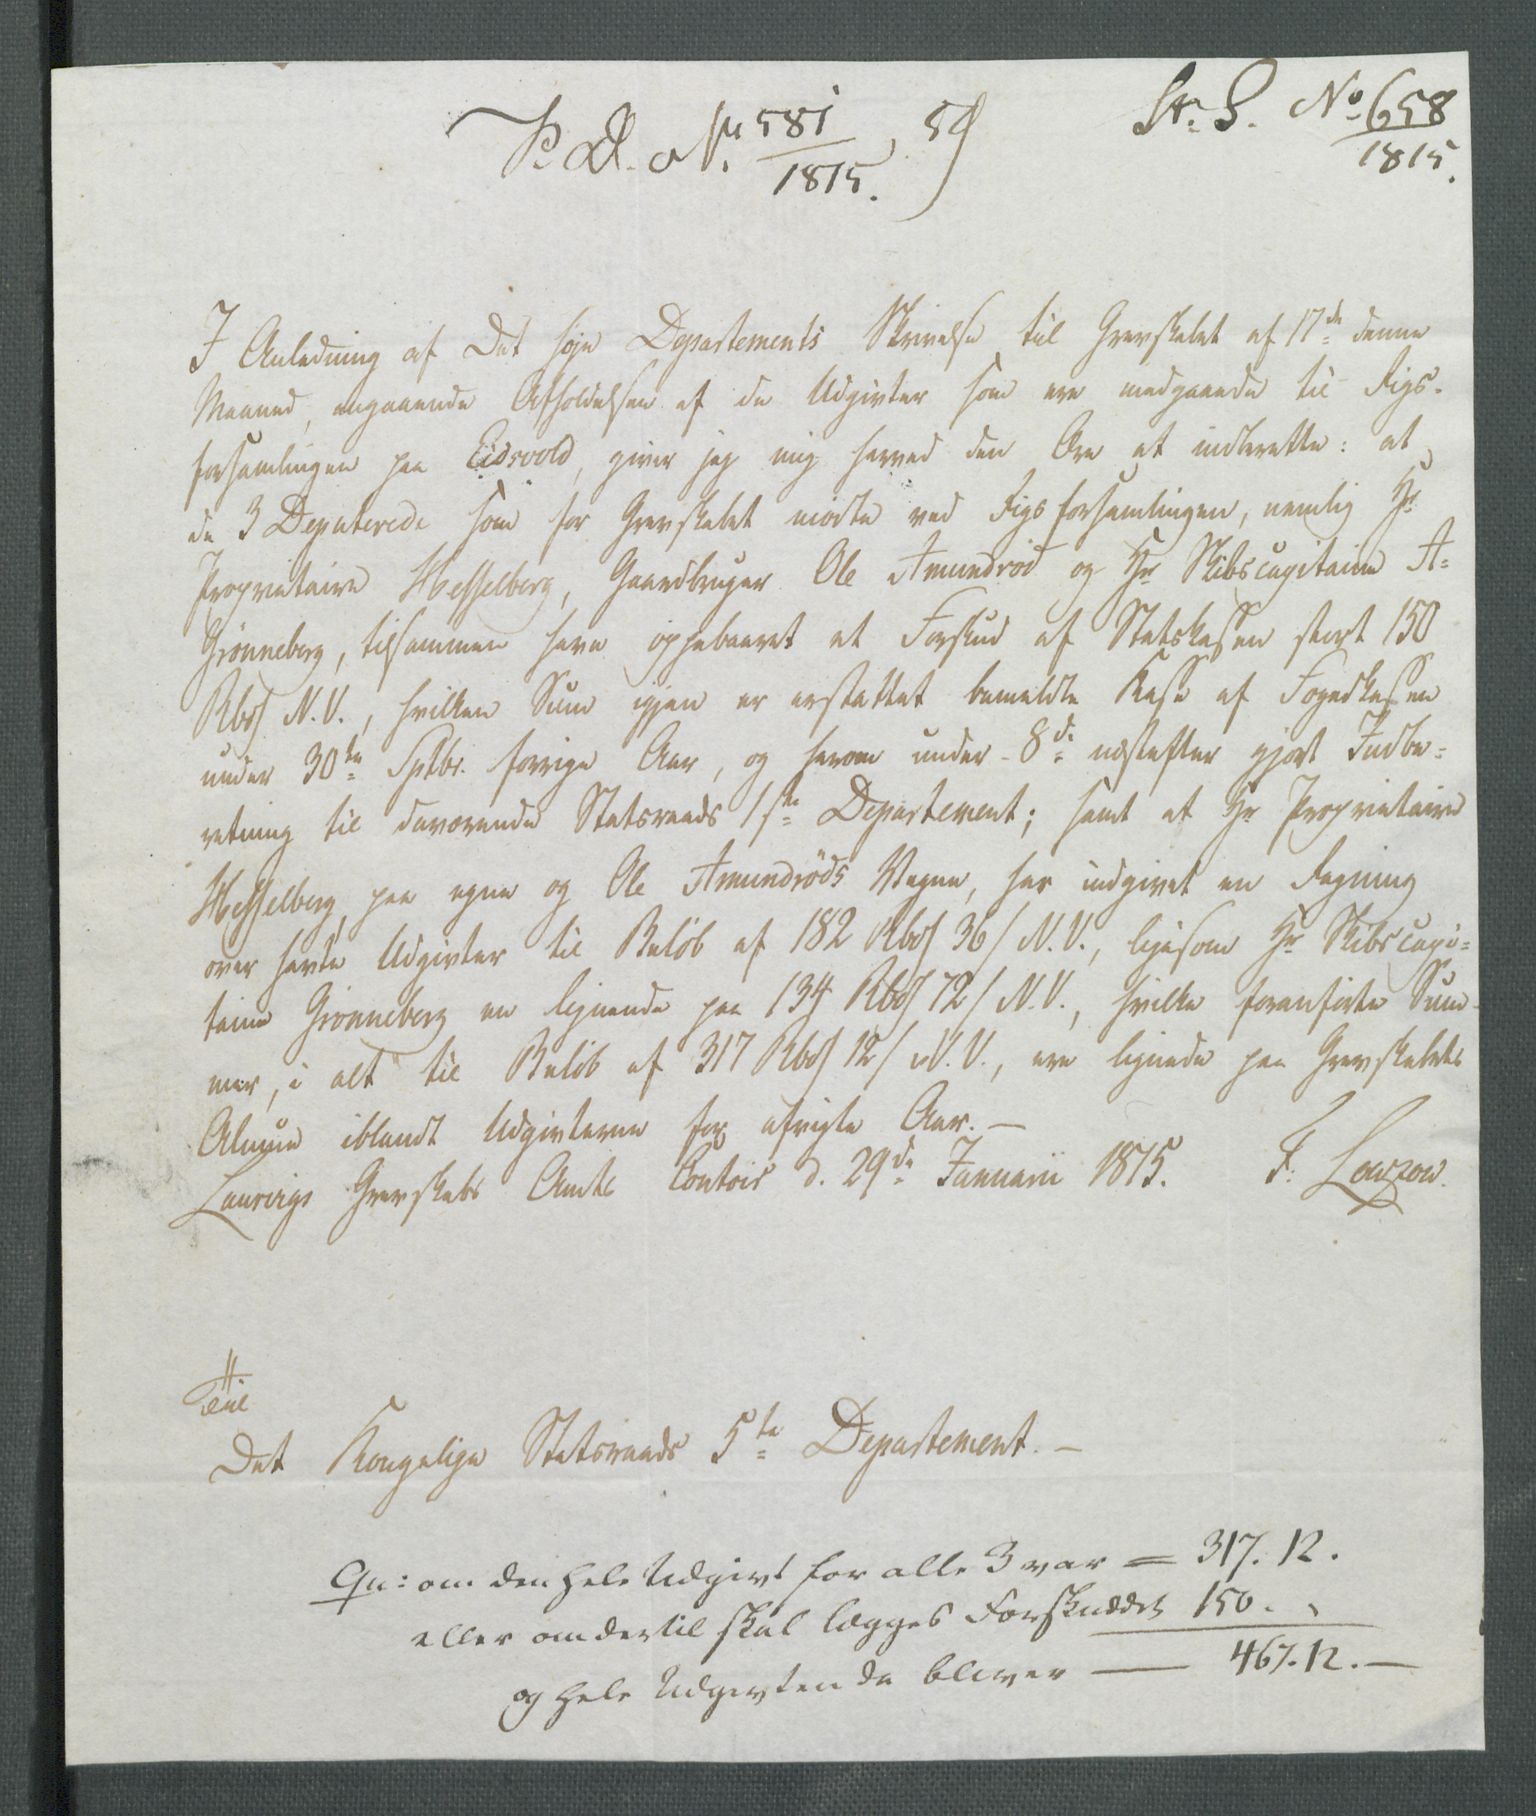 P. D. Nr. 581/1815. 59
St. S. No 658/1815.
I Anledning af Det høje Departements Skrivelse til Grevskabet af 17de denne
Maaned, angaaende Afholdelsen af de Udgivter som ere medgaaede til Rigs-
forsamlingen paa Eidsvold, giver jeg mig herved den Ære at indberette: at
de 3 Deputerede som for Grevskabet mødte ved Rigsforsamlingen, nemlig Hr
Proprietaire Hesselberg, Gaardbruger Ole Amundrød og Hr Skibscapitaine A=
Grønneberg, tilsammen have oppebaaret et Forskud af Statskassen stort 150
Rbd N.V., hvilken Sum igjen er erstattet bemeldte Kasse af Fogedkassen
under 30te Sptbr. forrige Aar, og herom under 8de næstefter gjort Indbe=
retning til daværende Statsraads 1ste Departement; samt at Hr Proprietaire
Hesselberg, paa egne og Ole Amundrøds Vegne, har indgivet en Regning
over havte Udgivter til Beløb af 182 Rbd 36 s N.V., ligesom Hr Skibscapi=
taine Grønneberg en lignende paa 134 Rbd 72 s N.V., hvilke foranførte Sum-
mer, i alt til Beløb af 317 Rbd 12 s N.V., ere lignede paa Grevskabets
Almue iblandt Udgivterne for afvigte Aar. —
Laurvigs Grevskabs Amts Contoir d. 29de Januarii 1815. F: Lowzow.
Til
Det Kongelige Statsraads 5te Departement. —
Qu: om den hele Udgivt for alle 3 var = 317. 12.
eller om dertil skal lægges Forskuddet 150. „
og hele Udgivten da bliver — 467. 12. —